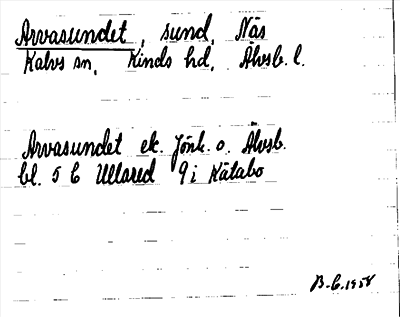 Arvasundet, sund, Näs
Kalvs sn, Kinds hd, Älvsb. l.
Arvasundet ek. Jönk. o. Älvsb.
bl. 5 C Ullared 9 i Kätabo
B-C. 1958